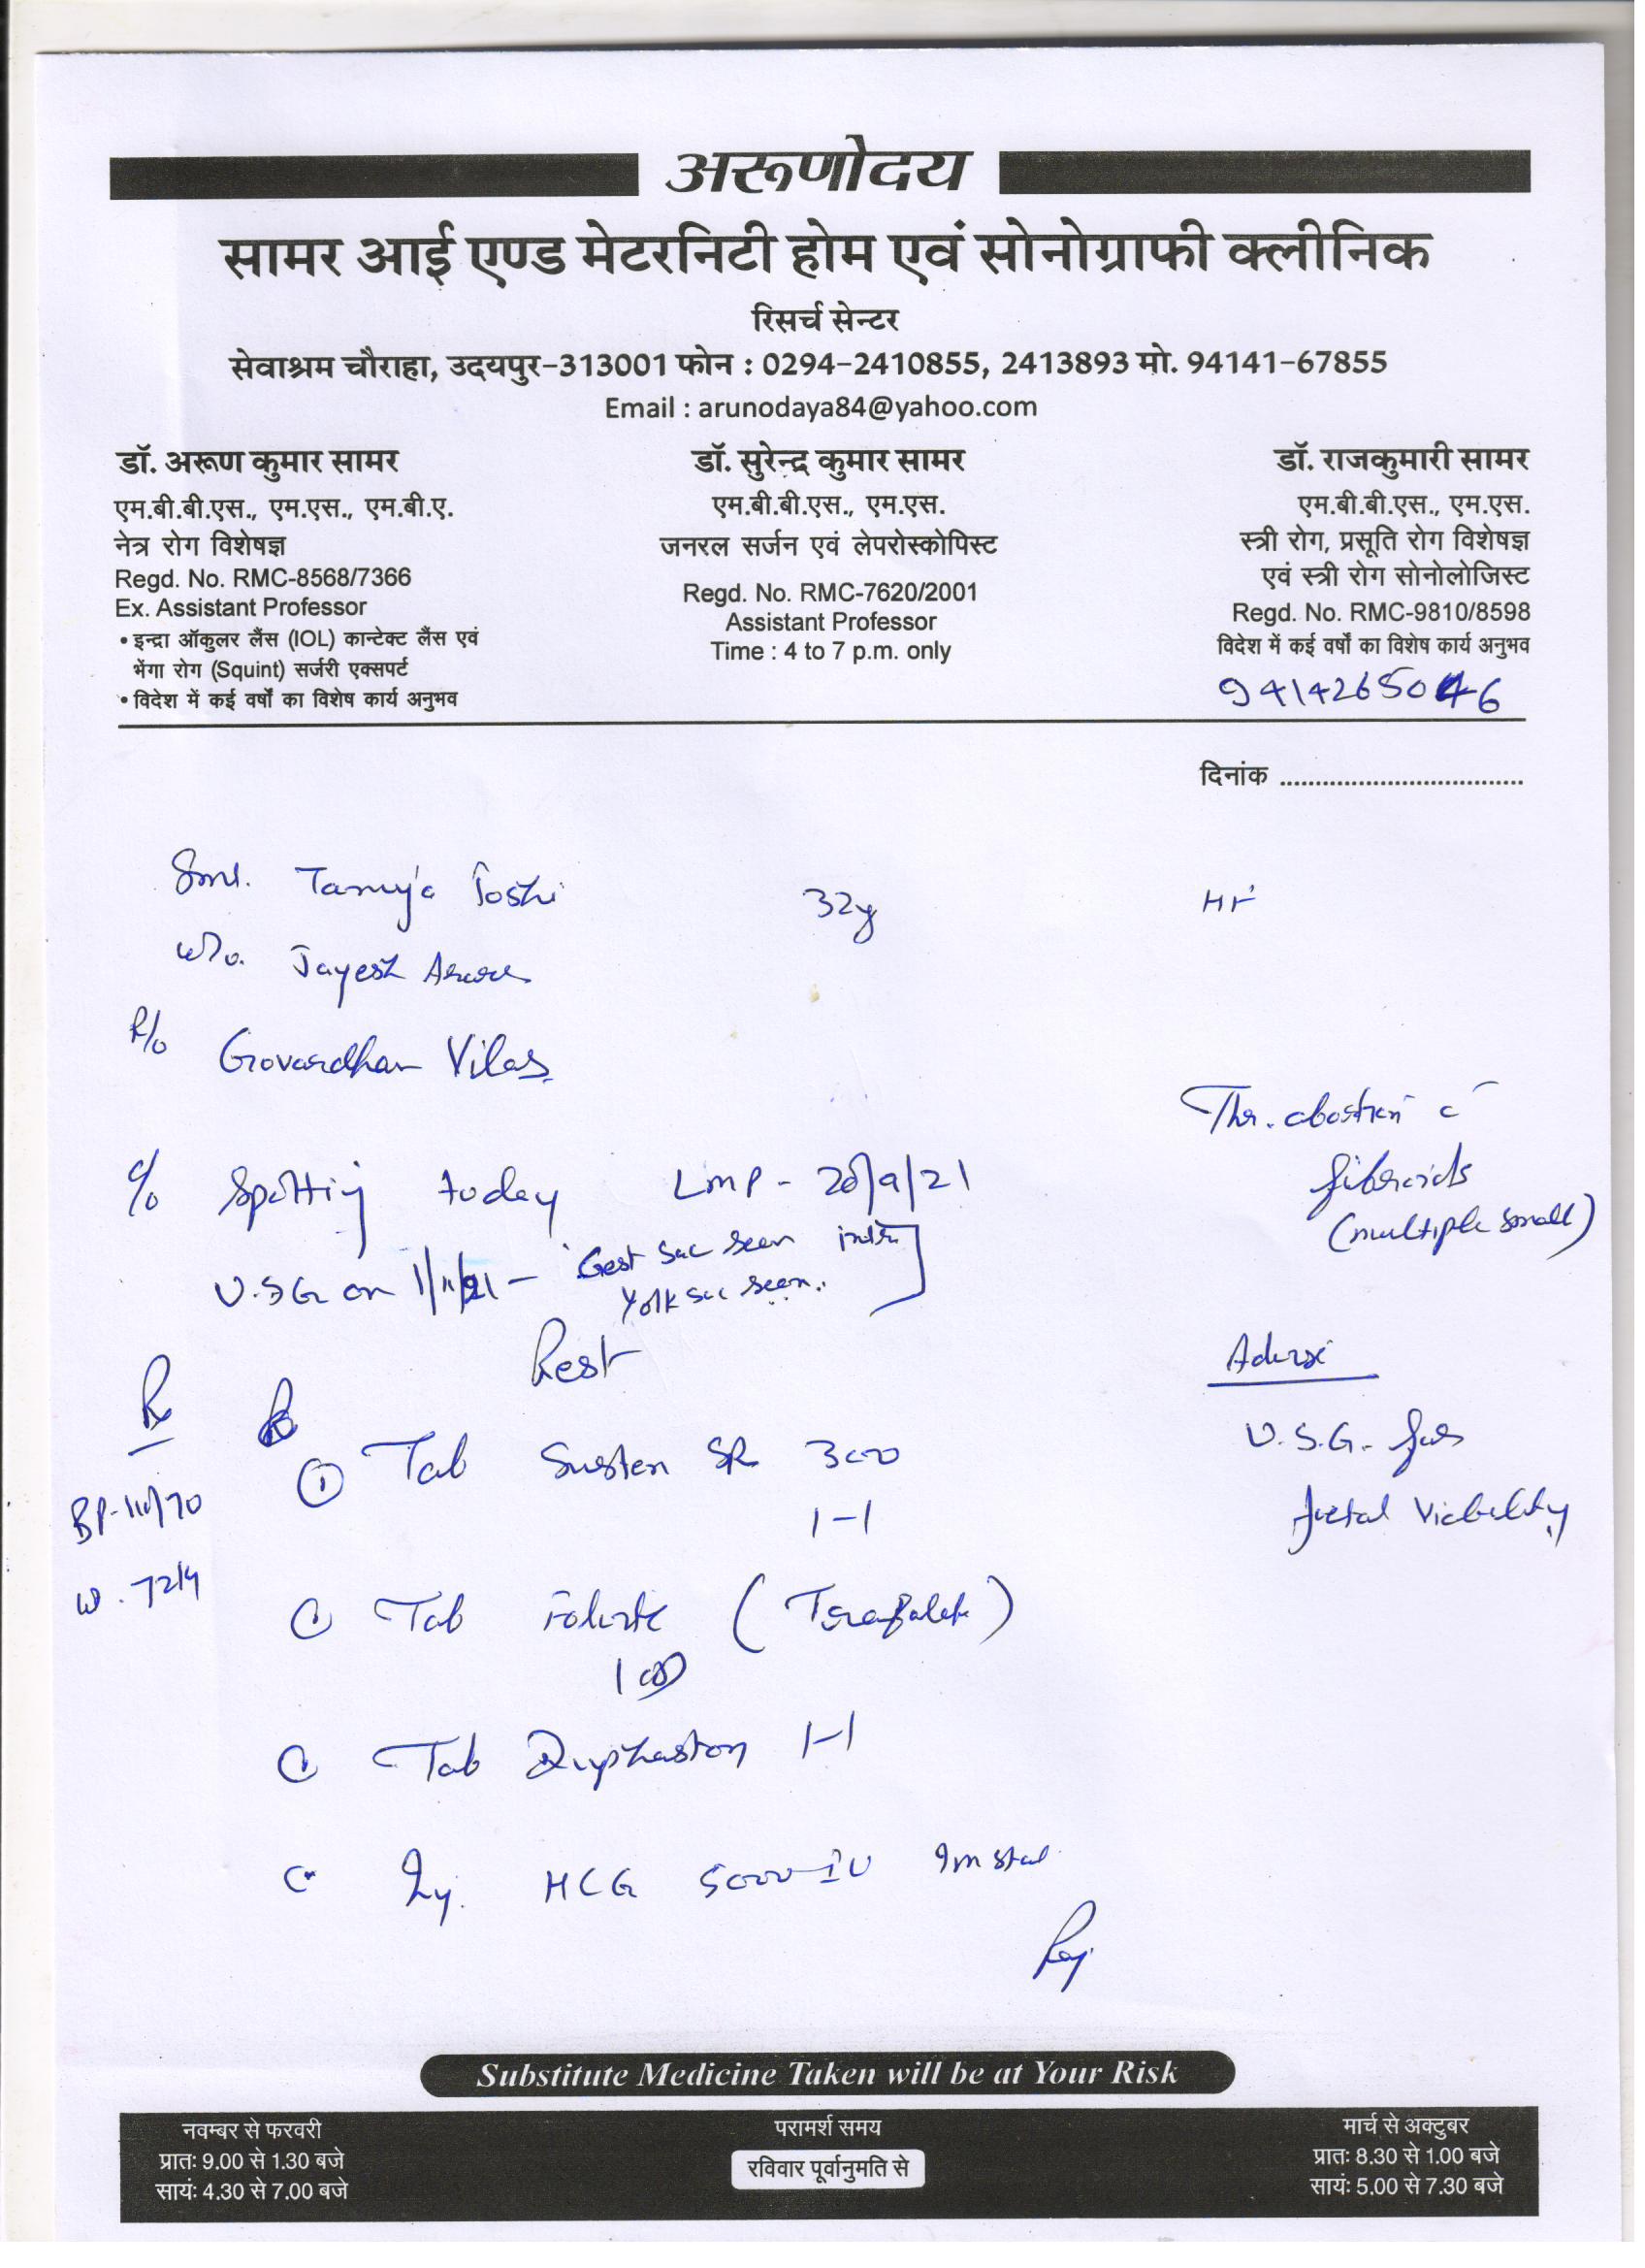 अरूणोदय
सामर आई एण्ड मेटरनिटी होम एवं सोनोग्राफी क्लीनिक
रिसर्च सेन्टर
सेवाश्रम चौराहा, उदयपुर-313001 फोन : 0294-2410855, 2413893 मो. 94141-67855
Email : arunodaya84@yahoo.com
डॉ. अरूण कुमार सामर
एम.बी.बी.एस., एम.एस., एम.बी.ए.
नेत्र रोग विशेषज्ञ
Regd. No. RMC-8568/7366
Ex. Assistant Professor
• इन्द्रा ऑकुलर लैंस (IOL) कान्टेक्ट लैंस एवं
भेंगा रोग (Squint) सर्जरी एक्सपर्ट
• विदेश में कई वर्षों का विशेष कार्य अनुभव
डॉ. सुरेन्द्र कुमार सामर
एम.बी.बी.एस., एम.एस.
जनरल सर्जन एवं लेपरोस्कोपिस्ट
Regd. No. RMC-7620/2001
Assistant Professor
Time : 4 to 7 p.m. only
डॉ. राजकुमारी सामर
एम.बी.बी.एस., एम.एस.
स्त्री रोग, प्रसूति रोग विशेषज्ञ
एवं स्त्री रोग सोनोलोजिस्ट
Regd. No. RMC-9810/8598
विदेश में कई वर्षों का विशेष कार्य अनुभव
9414265046
दिनांक ..................................
Smt. Tanuja Joshi 32y
W/o. Jayesh
R/o Govardhan Vilas
Thr. abortion c
fibroids
(multiple small)
c/o Spotting today LMP - 20/9/21
U.S.G on 1/11/21 - Gest sac seen
Yolk sac seen.
Rest
Advise
U.S.G. for
foetal Viability
Rx
① Tab Susten SR 300
1-1
BP-110/70
W.
Tab
1 OD
Tab Duphaston 1-1
Inj. HCG 5000 IU Im stat
Raj
Substitute Medicine Taken will be at Your Risk
नवम्बर से फरवरी
प्रातः 9.00 से 1.30 बजे
सायंः 4.30 से 7.00 बजे
परामर्श समय
रविवार पूर्वानुमति से
मार्च से अक्टुबर
प्रातः 8.30 से 1.00 बजे
सायंः 5.00 से 7.30 बजे